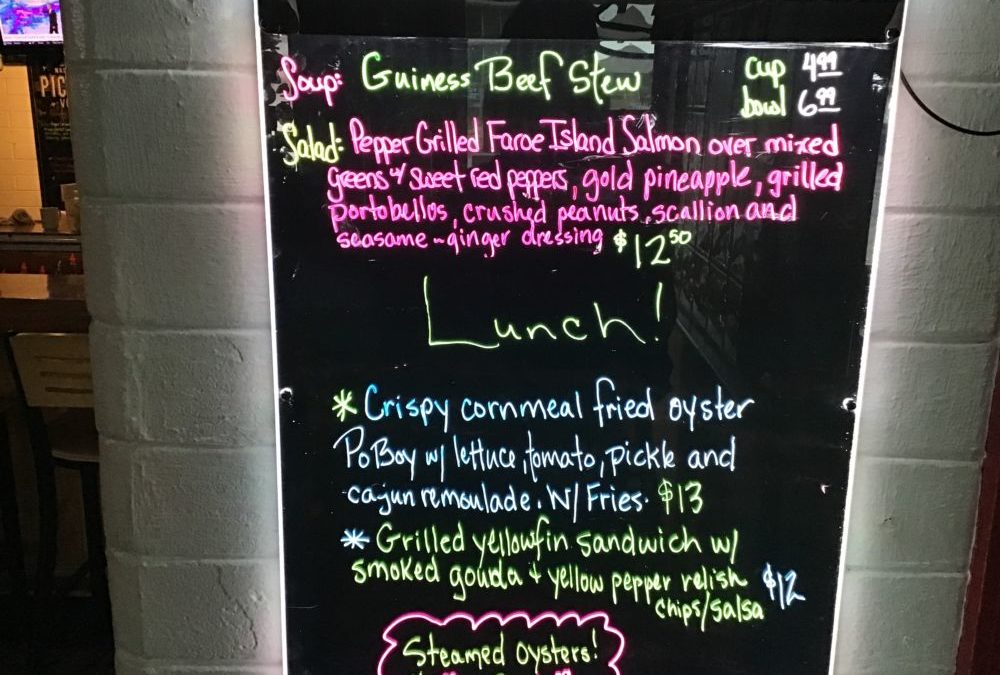 PIC
Soup: Guiness Beef Stew cup 4.99
bowl 6.99
Salad: Pepper Grilled Faroe Island Salmon over mixed
greens w/ sweet red peppers, gold pineapple, grilled
portobellos, crushed peanuts, scallion and
seasame-ginger dressing $12.50
Lunch!
* Crispy cornmeal fried oyster
PoBoy w/ lettuce, tomato, pickle and
cajun remoulade. W/ Fries. $13
* Grilled yellowfin sandwich w/
smoked gouda + yellow pepper relish $12
chips/salsa
Steamed oysters!